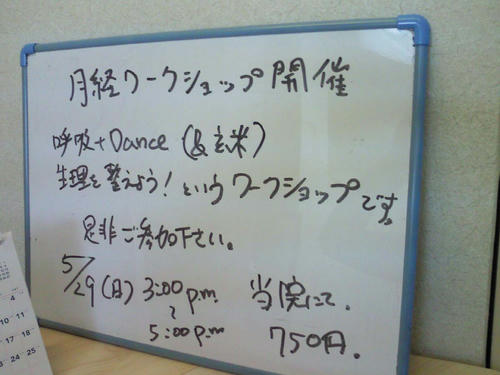 月経ワークショップ開催
呼吸+Dance(&玄米)
生理を整えよう!というワークショップです。
是非ご参加下さい。
5/29(日) 3:00 p.m 当院にて、
~
5:00 p.m 750円。
4
10 11
17 18
24 25